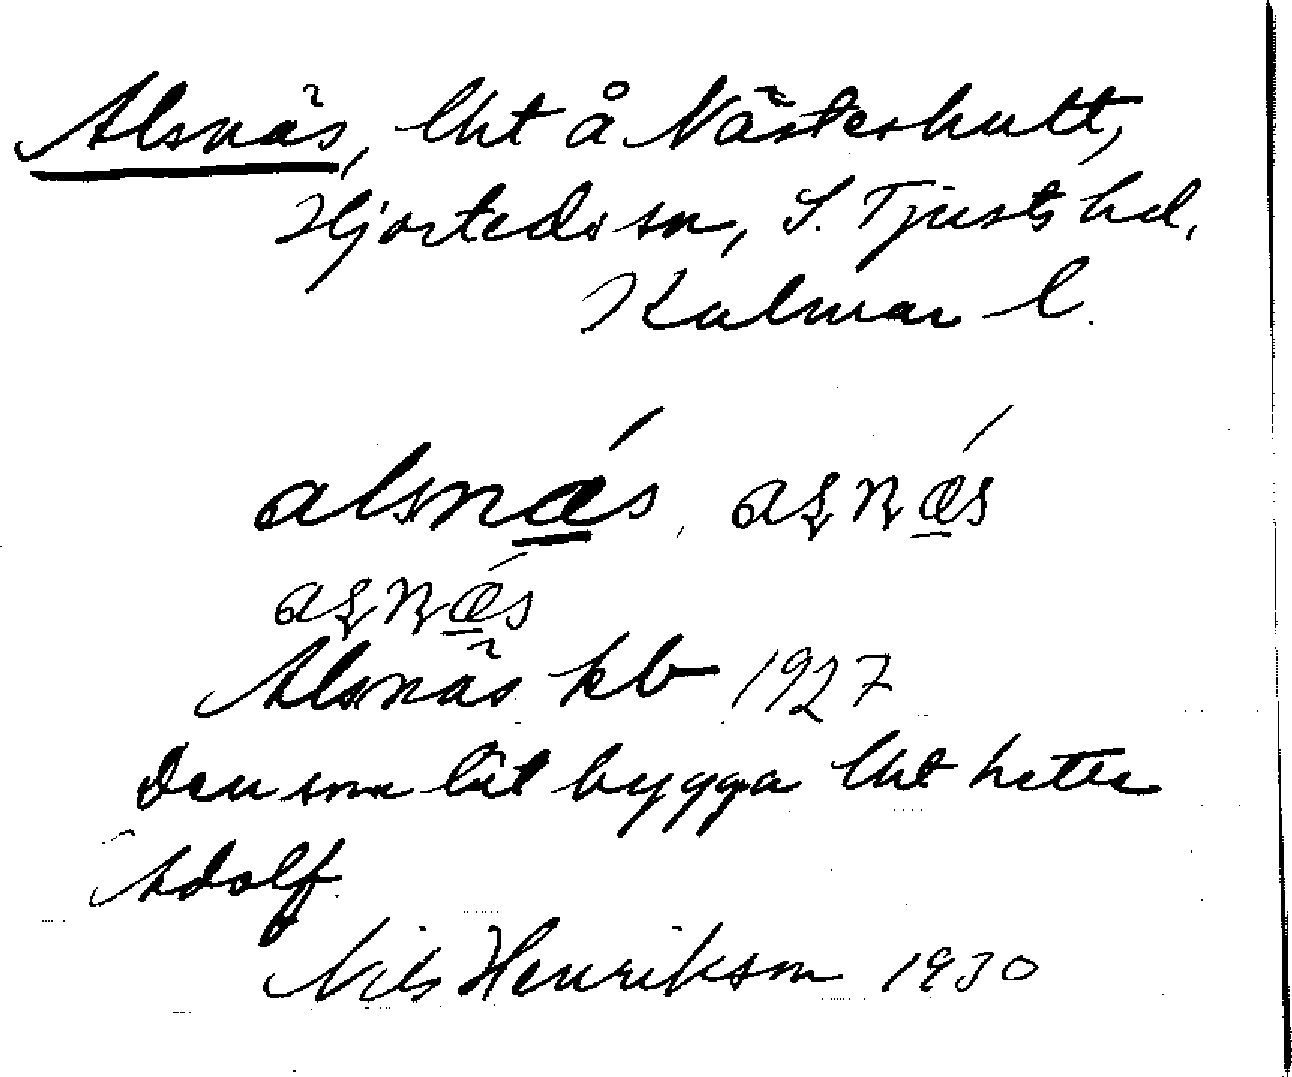 Alsnäs, lht å Västerhult,
Hjorteds sn, S. Tjusts hd,
Kalmar l.
alsnǽ̲s, aʂɳǽ̲s
aʂɳǽ̲s
Alsnäs kb 1927
Den som lät bygga lht hette
Adolf.
Nils Henrikson 1930